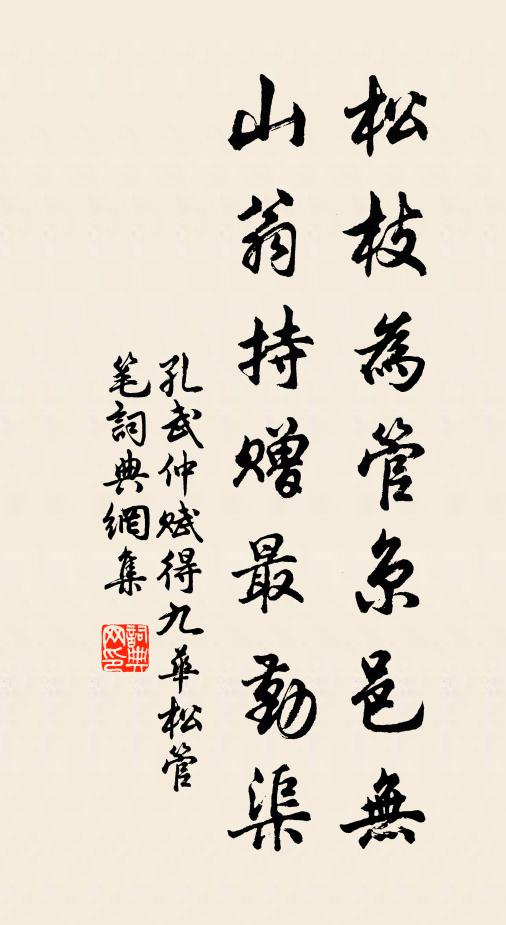 松枝為管京邑無
山翁持赠最勤渠
孔武仲赋得九華松管
笔詞典網集
詞典
网印